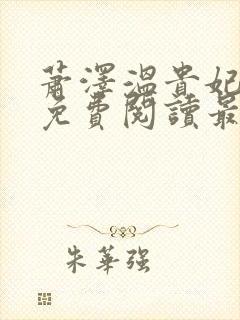 蕭澤溫貴妃
免費閱讀最
朱華強